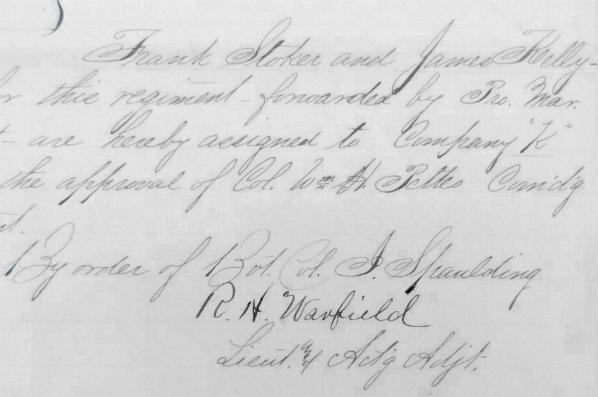 Frank Stoker and James Kelly-
for this regiment - forwarded by Pro. Mar.
- are hereby assigned to Company "K"
the approval of Col. Wm H. Pettes Comd'g
By order of Bvt. Col. I. Spaulding
R. H. Warfield
Lieut. & Act'g Adjt.